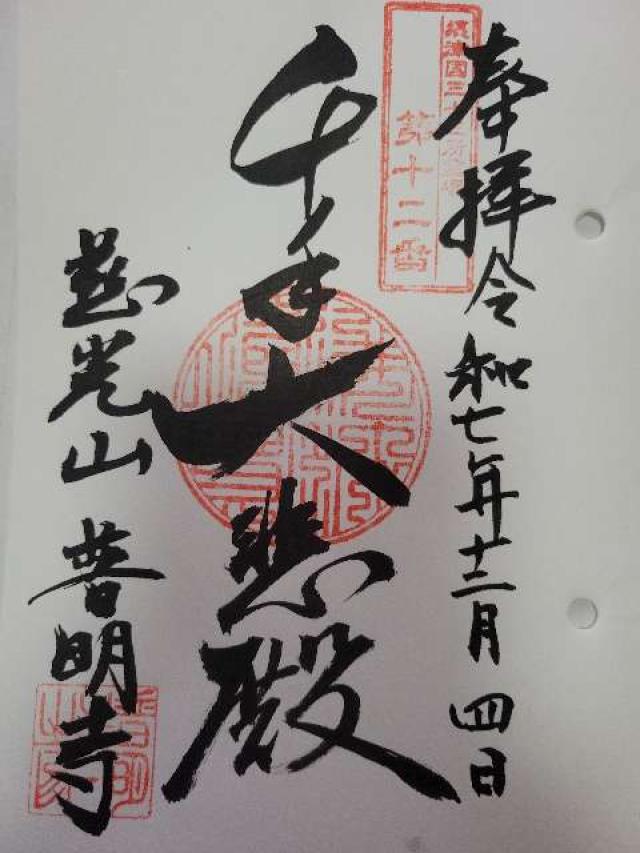 奉拝 令和七年十二月四日
摂津国三十三所
第十二番
千手大悲殿
慈光山 普明寺